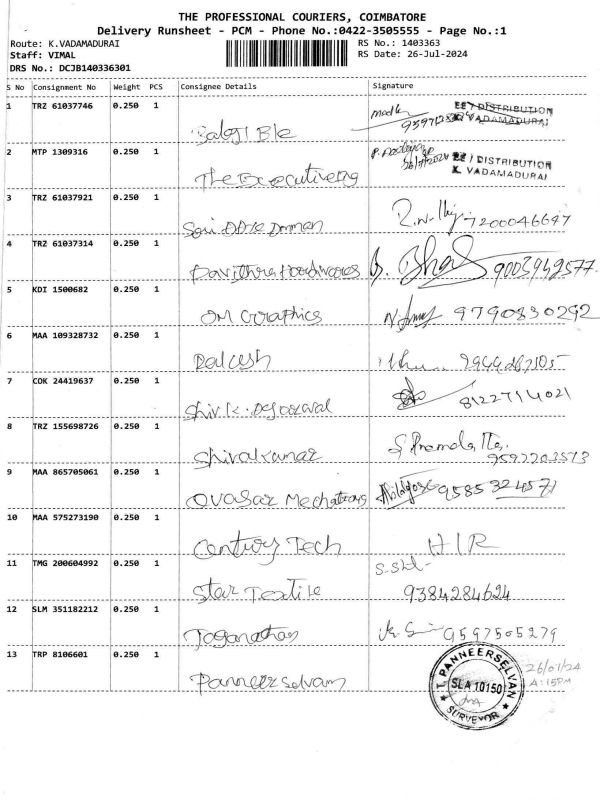 THE PROFESSIONAL COURIERS, COIMBATORE
Delivery Runsheet - PCM - Phone No.:0422-3505555 - Page No.:1
Route: K.VADAMADURAI RS No.: 1403363
Staff: VIMAL RS Date: 26-Jul-2024
DRS No.: DCJB140336301
S No Consignment No Weight PCS Consignee Details Signature
1 TRZ 61037746 0.250 1
EET DISTRIBUTION
K VADAMADURAI
2 MTP 1309316 0.250 1
DISTRIBUTION
K. VADAMADURAI
The Executive
3 TRZ 61037921 0.250 1
7200046697
4 TRZ 61037314 0.250 1
Pavithra Hardwares 9003942577
5 KDI 1500682 0.250 1
OM Graphics 9790830292
6 MAA 109328732 0.250 1
7 COK 24419637 0.250 1
8122714021
8 TRZ 155698726 0.250 1
Shivakumar
9592203573
9 MAA 865705061 0.250 1
9585324571
10 MAA 575273190 0.250 1
Century Tech
11 TMG 200604992 0.250 1
Star Textile 9384284624
12 SLM 351182212 0.250 1
Joganathan 9597505279
13 TRP 8106601 0.250 1
Panneerselvam
T. PANNEERSELVAN
SLA 10150
SURVEYOR
26/07/24
4:15PM